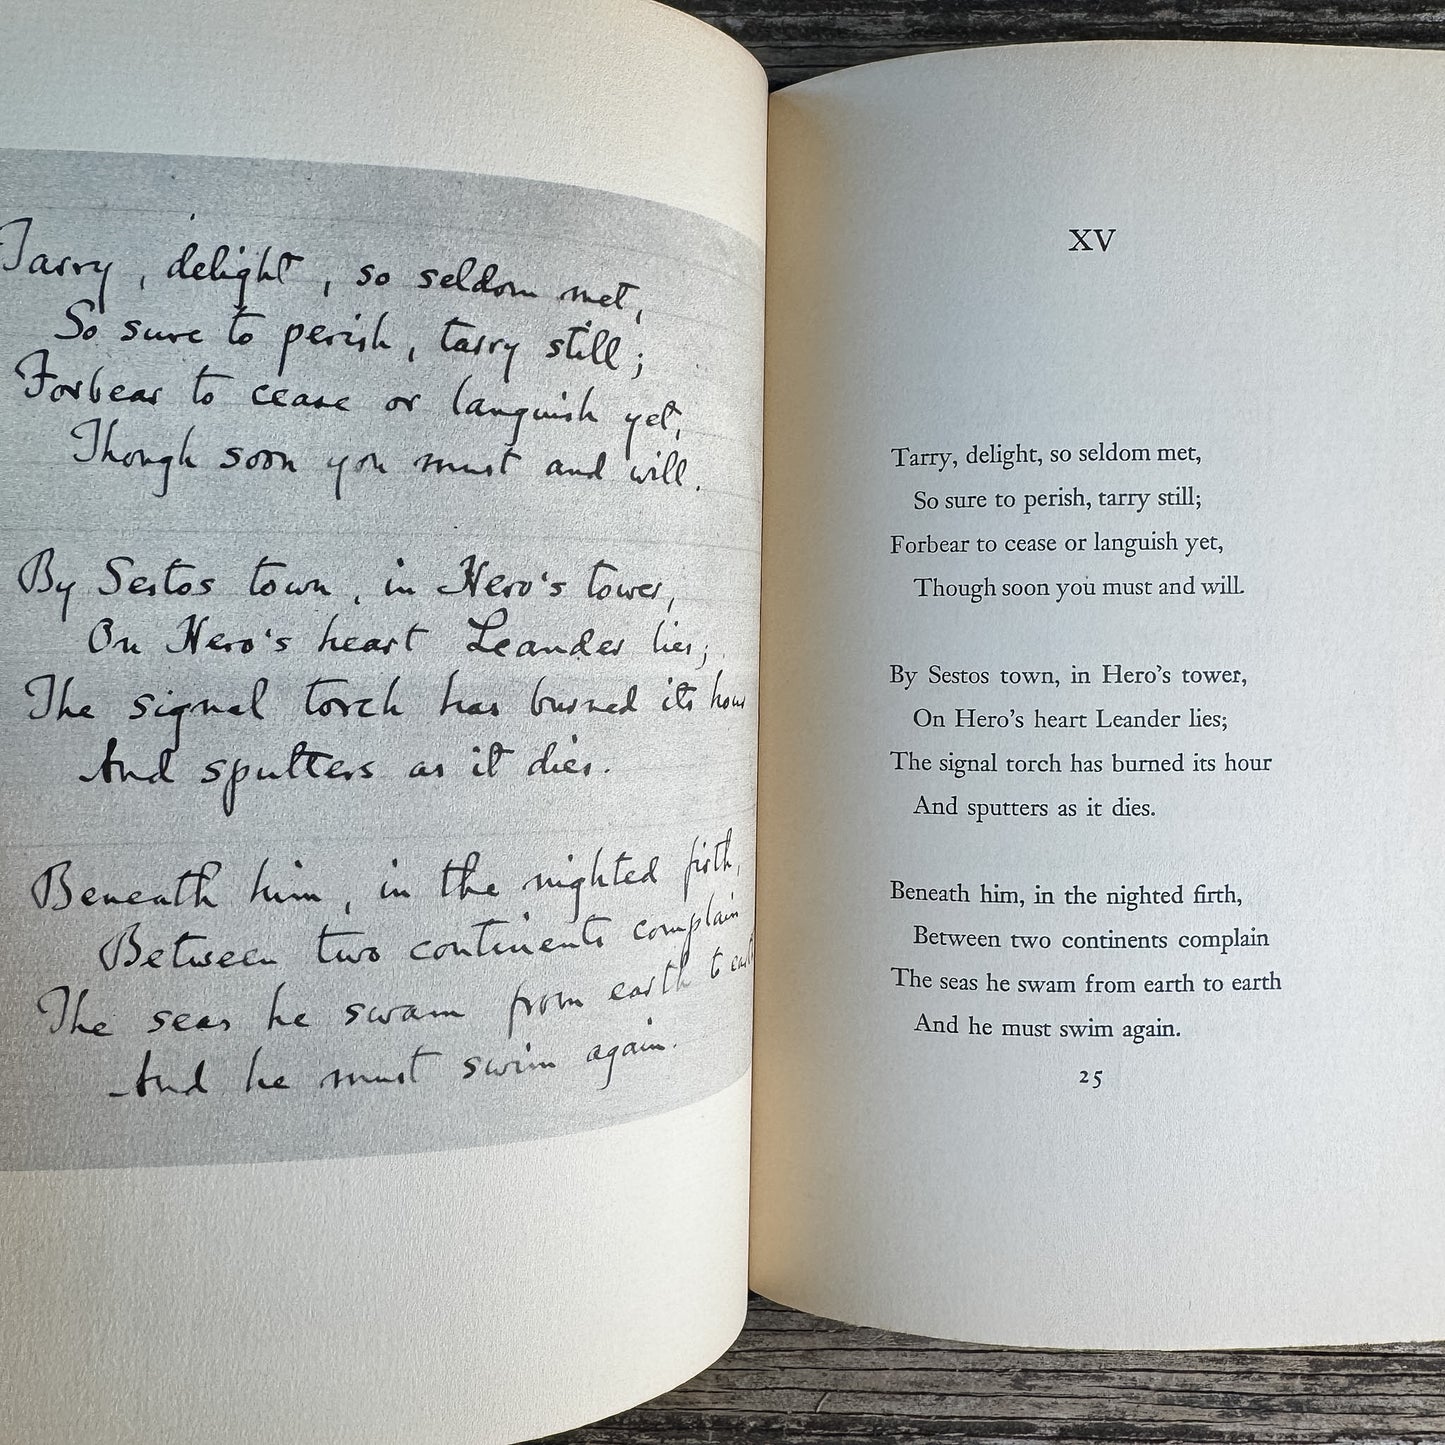 Tarry, delight, so seldom met,
So sure to perish, tarry still;
Forbear to cease or languish yet,
Though soon you must and will.
By Sestos town, in Hero's tower,
On Hero's heart Leander lies;
The signal torch has burned its hour
And sputters as it dies.
Beneath him, in the nighted firth,
Between two continents complain
The seas he swam from earth to earth
And he must swim again.
XV
Tarry, delight, so seldom met,
So sure to perish, tarry still;
Forbear to cease or languish yet,
Though soon you must and will.
By Sestos town, in Hero's tower,
On Hero's heart Leander lies;
The signal torch has burned its hour
And sputters as it dies.
Beneath him, in the nighted firth,
Between two continents complain
The seas he swam from earth to earth
And he must swim again.
25